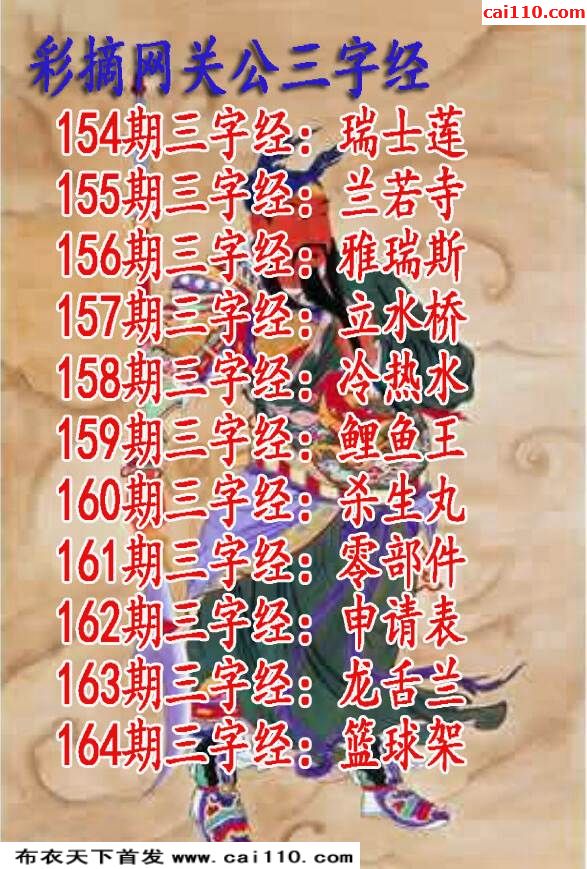 cai110.com
彩摘网关公三字经
154期三字经：瑞士莲
155期三字经：兰若寺
156期三字经：雅瑞斯
157期三字经：立水桥
158期三字经：冷热水
159期三字经：鲤鱼王
160期三字经：杀生丸
161期三字经：零部件
162期三字经：申请表
163期三字经：龙舌兰
164期三字经：篮球架
布衣天下首发 www.cai110.com